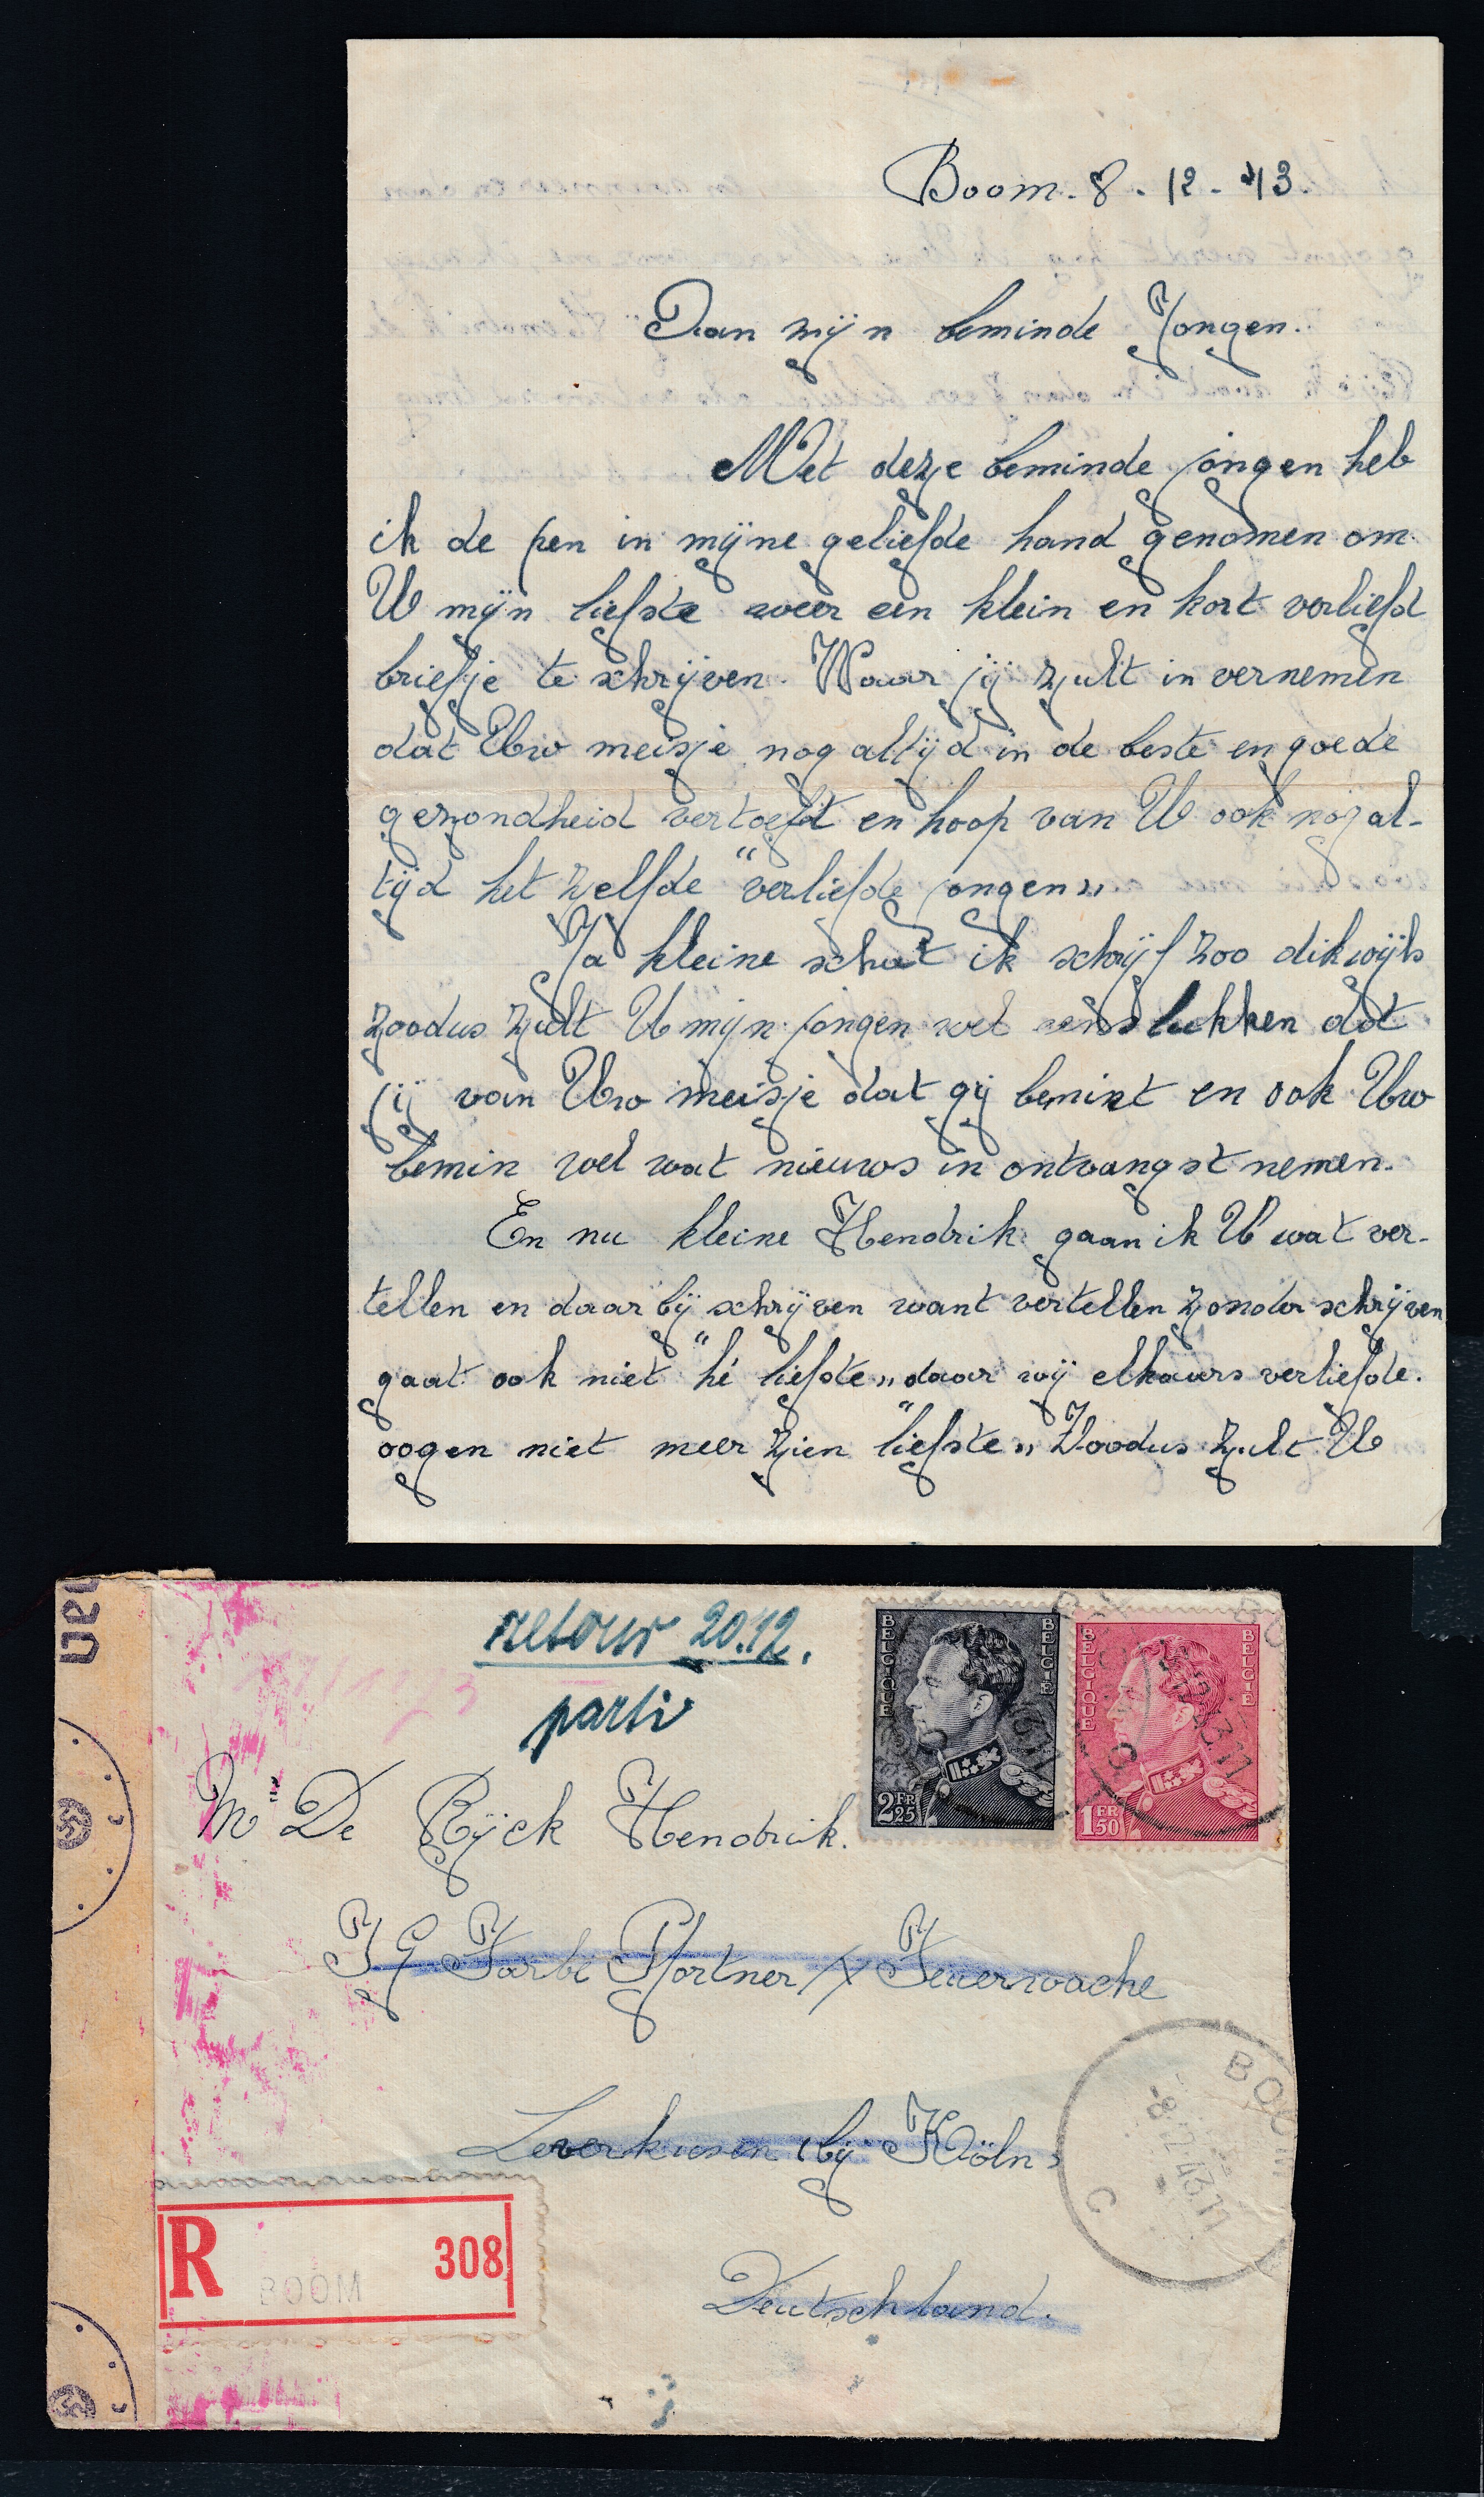 Boom. 8. 12. 43.
Aan mijn beminde Jongen.
Met deze beminde jongen heb
ik de pen in mijne geliefde hand genomen om
U mijn liefste weer een klein en kort verliefd
briefje te schrijven. Waar jij zult in vernemen
dat Uw meisje nog altijd in de beste en goede
gezondheid vertoefd en hoop van U ook nog al-
tijd het zelfde "verliefde jongen„
Ja kleine schat ik schrijf zoo dikwijls
zoodus zult U mijn jongen wel lukken dat
jij van Uw meisje dat gij bemint en ook Uw
bemin wel wat nieuws in ontvangst nemen.
En nu kleine Hendrik gaan ik U wat ver-
tellen en daar bij schrijven want vertellen zonder schrijven
gaat ook niet "hé liefste„ daar wij elkaurs verliefde.
oogen niet meer zien "liefste„ Zoodus zult U
retour 20.12.
parti
BELGIQUE BELGIË
2 FR 25
BELGIQUE BELGIË
1 FR 50
Mr De Rijck Hendrik.
IG Farbe Pfortner X Feuerwache
Leverkusen (bij Köln)
Deutschland.
R BOOM 308
BOOM
-8.12.43.17
C